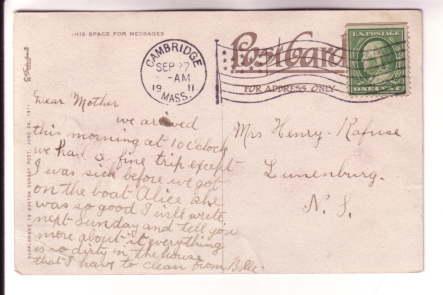 THIS SPACE FOR MESSAGES
CAMBRIDGE
SEP 27
-AM
19 11
MASS.
Post Card
FOR ADDRESS ONLY
U.S. POSTAGE
ONE CENT
Dear Mother
we arrived
this morning at 10 o'clock
we had a fine trip except
I was sick before we got
on the boat Alice she
was so good I will write
next Sunday and tell you
more about it everything
is so dirty in the house
that I have to clean from
Mrs Henry Rafuse
Lunenburg.
N. S.